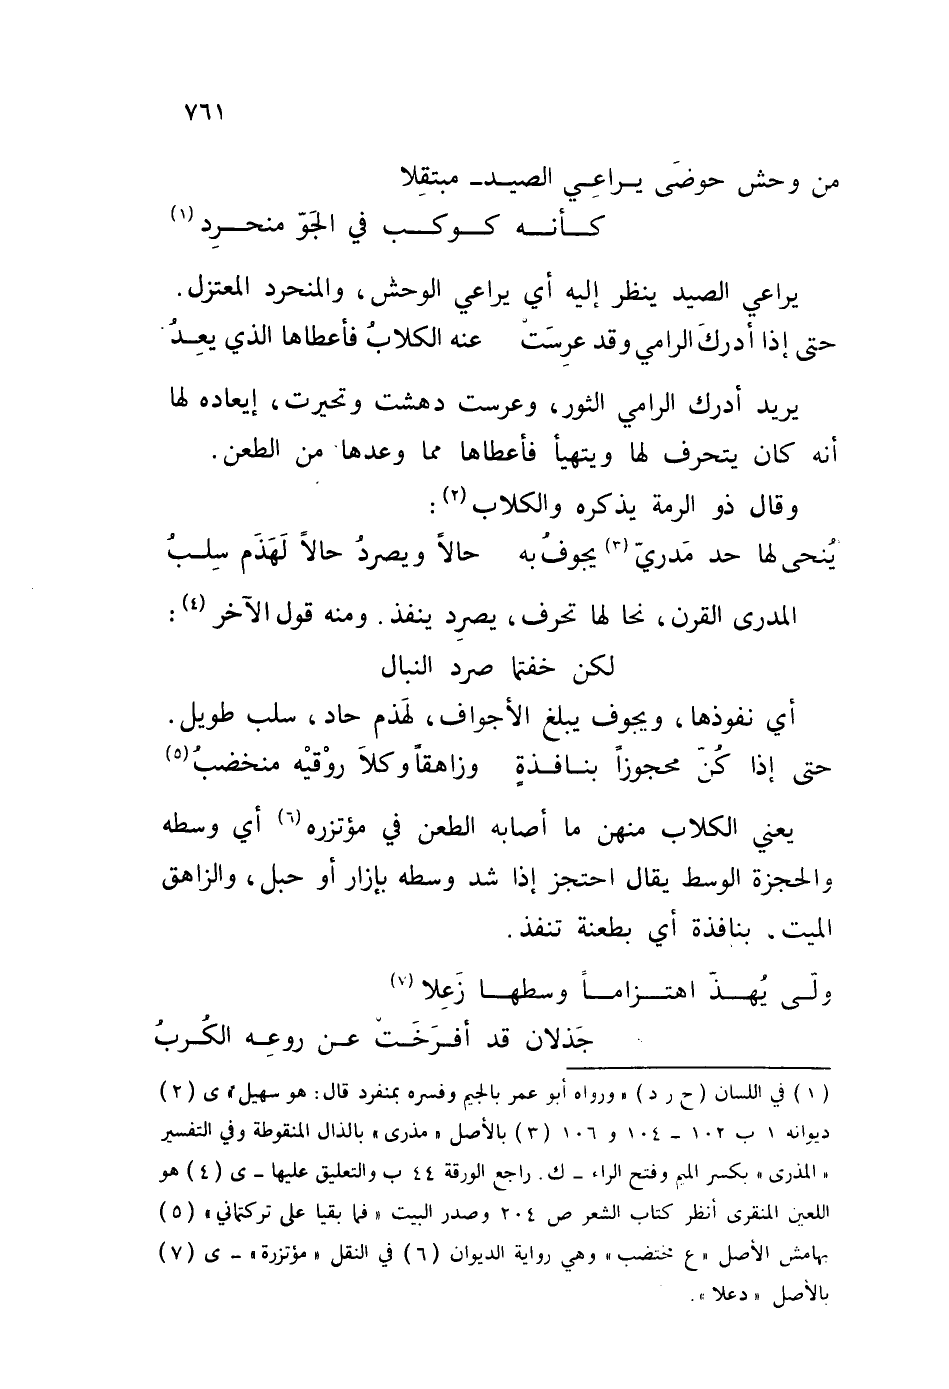 ٧٦١
من وحش حوضَى يـراعِـي الصيـد ـ مبتقِلا
كـأنـه كـوكـب في الجَوّ منحـرِد (١)
يراعي الصيد ينظر إليه أي يراعي الوحش، والمنحرد المعتزل.
حتى إذا أدركَ الرامي وقد عرِسَتْ عنه الكلابُ فأعطاها الذي يعِدُ
يريد أدرك الرامي الثور، وعرست دهشت وتحيرت، إيعاده لها
أنه كان يتحرف لها ويتهيأ فأعطاها مما وعدها من الطعن.
وقال ذو الرمة يذكره والكلاب (٢) :
يُنحى لها حد مَدريّ (٣) يجوفُ به حالاً ويصردُ حالاً لَهَذَم سلِبُ
المدرى القرن، نحا لها تحرف، يصرِد ينفذ. ومنه قول الآخر (٤) :
لكن خفتما صرد النبال
أي نفوذها، ويجوف يبلغ الأجواف، لهَذم حاد، سلب طويل.
حتى إذا كُنّ محجوزاً بنـافـذةٍ وزاهقاً وكلاَ روْقيْه منخضبُ (٥)
يعني الكلاب منهن ما أصابه الطعن في مؤتزره (٦) أي وسطه
والحجزة الوسط يقال احتجز إذا شد وسطه بإزار أو حبل، والزاهق
الميت. بنافذة أي بطعنة تنفذ.
ولّـى يُهـذّ اهتـزامـاً وسطهـا زَعِلا (٧)
جَذلان قد أفـرَخَـتْ عـن روعِـه الكُـربُ
(١) في اللسان (ح ر د) « ورواه أبو عمر بالجيم وفسره بمنفرد قال: هو سهيل » ى (٢)
ديوانه ١ ب ١٠٢ ـ ١٠٤ و ١٠٦ (٣) بالأصل « مذرى » بالذال المنقوطة وفي التفسير
« المذرى » بكسر الميم وفتح الراء ـ ك. راجع الورقة ٤٤ ب والتعليق عليها ـ ى (٤) هو
اللعين المنقرى أنظر كتاب الشعر ص ٢٠٤ وصدر البيت « فما بقيا على تركتماني » (٥)
بهامش الأصل « ع ختضب » وهي رواية الديوان (٦) في النقل « مؤتزرة » ـ ى (٧)
بالأصل « دعلا ».